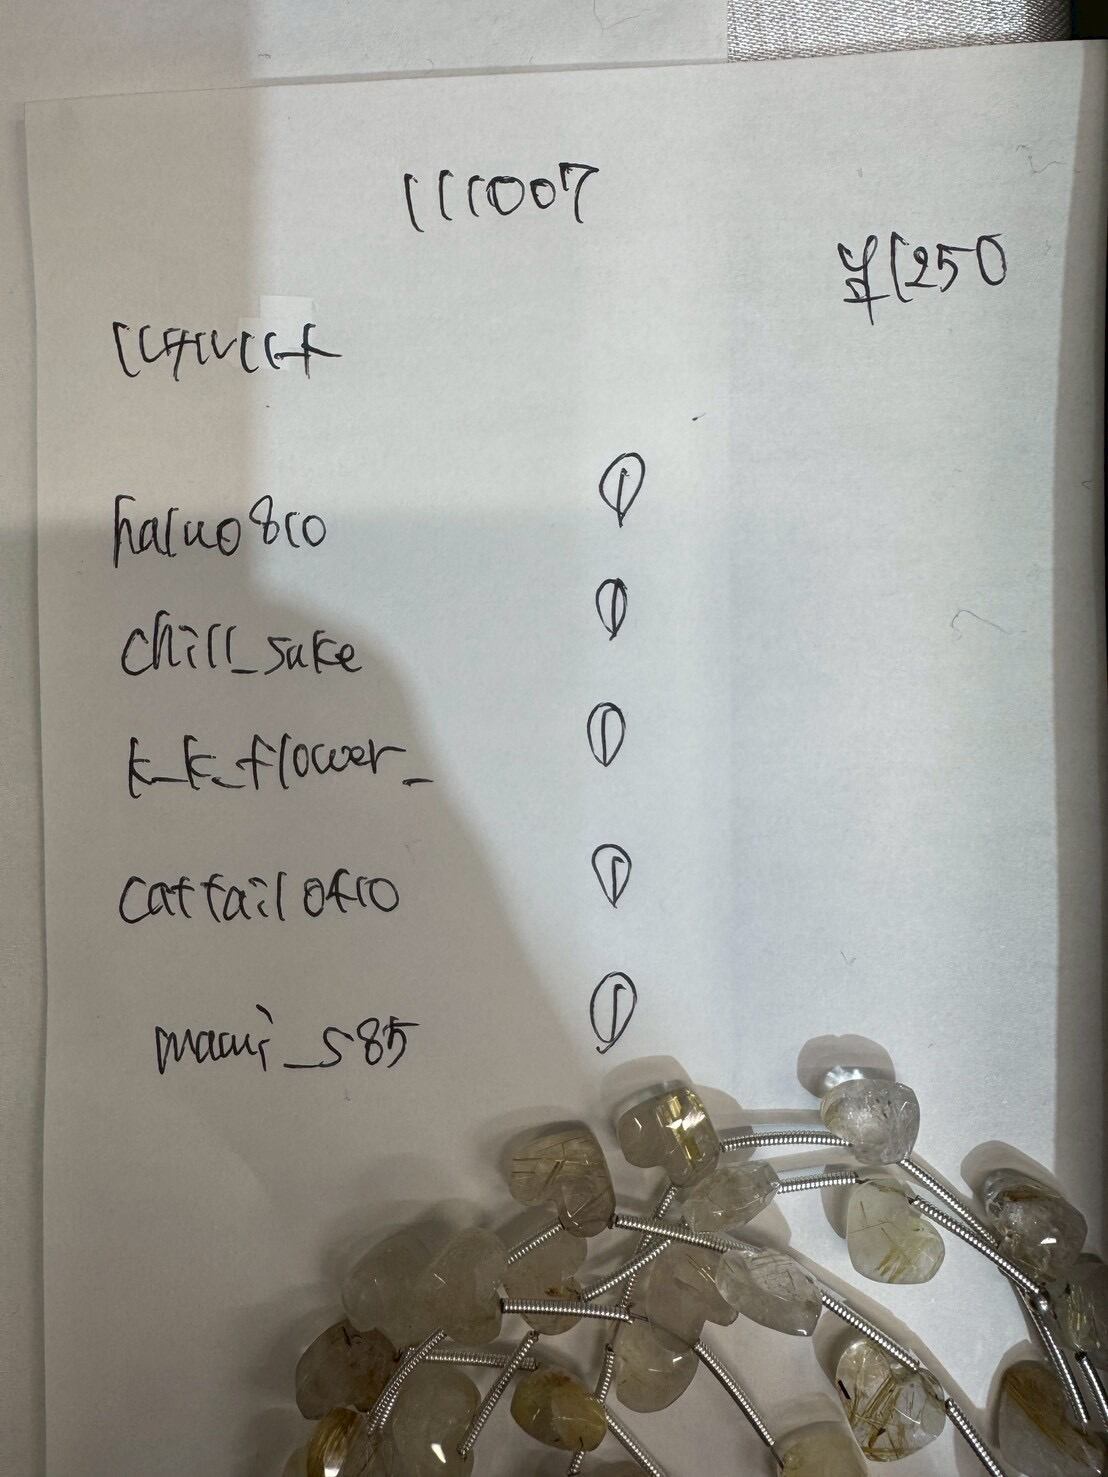 111007
¥1250
haluo810 ①
chill_sake ①
k_k_flower_ ①
cattail0410 ①
maaui_s85 ①